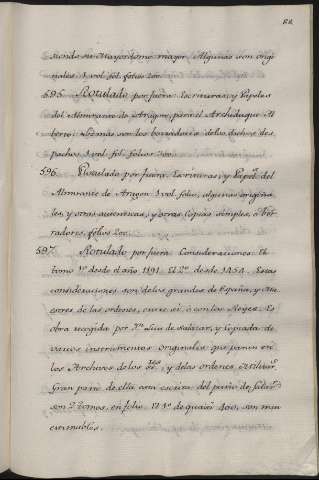 siendo su Mayordomo mayor. Algunas son origi
nales. 1. vol. fol. folios 200.
595. Rotulado por fuera Escrituras, y Papeles
del Almirante de Aragon, para el Archiduque Al
berto. Además son los borradores de los dichos des
pachos 1. vol. fol. folios 300.
596. Rotulado por fuera, Escrituras, y Papels. del
Almirante de Aragon 1. vol. folio, algunas origina
les, y otras autenticas, y otras copias simples, o bor
radores, folios 200.
597. Rotulado por fuera Consideraciones. El
tomo 1º desde el año 1191. El 2º desde 1454. Estas
consideraciones son de los grandes de España, y Ma
estres de las ordenes, entre si o con los Reyes. Es
obra recogida por Dn. Luis de Salazar, y copiada de
varios instrumentos originales que paran en
los Archivos de los Sres, y de las ordenes, Militars.
Gran parte de ella está escrita del puño de Salazar
son 2 tomos, en folio. El 1º de quasi 400,, son muy
estimables.
88.